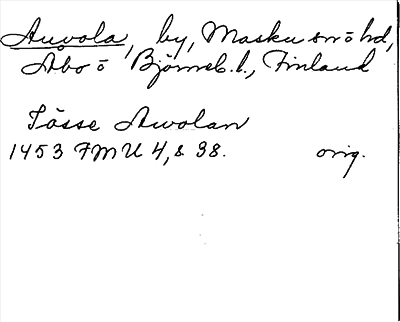 Auvola, by, Masku sn o hd,
Åbo o Björneb. l., Finland
Tösse Awolan
1453 FMU 4, s 38. orig.